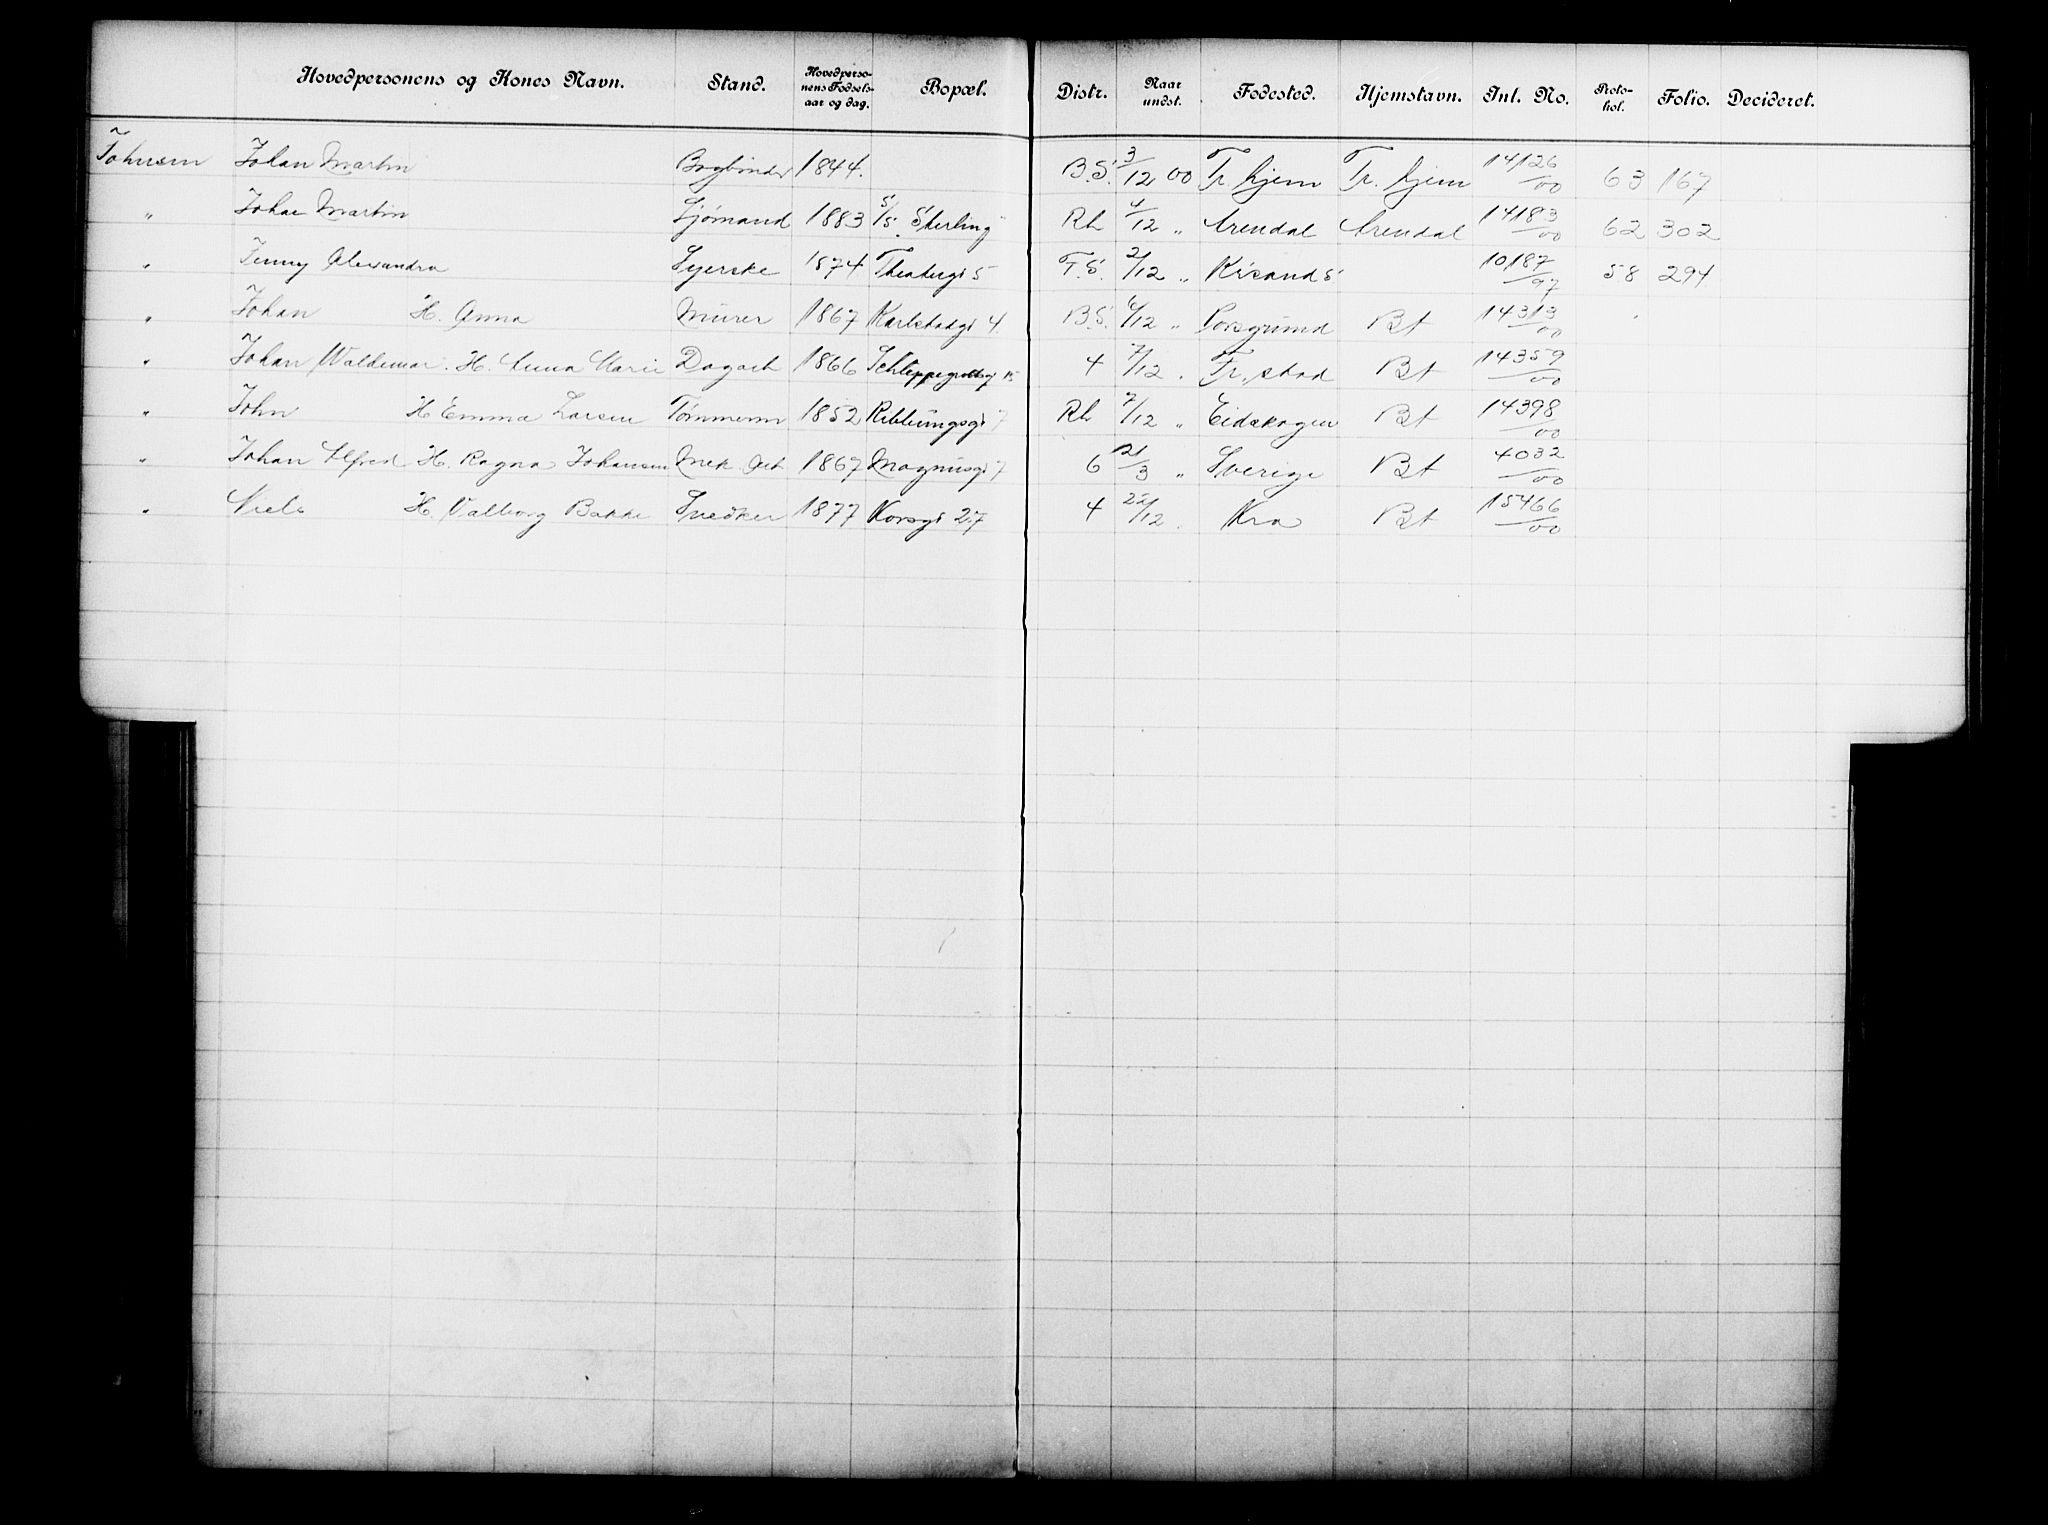 Hovedpersonens og Kones Navn. Stand. Hovedperso-nens Fødsels-aar og dag. Bopæl. Distr. Naar undst. Fødested. Hjemstavn. Int. No. Proto-kol. Folio. Decideret.
Johnsen Johan Martin Bogbinder 1844. B.S. 3/12 00 Tr. hjem Tr. hjem 14126/00 63 167
" Johan Martin Sjømand 1883 S/S. Sterling Rh 4/12 " Arendal Arendal 14183/00 62 302
" Jenny Alexandra Syerske 1874 Theatergd 5 F.S. 2/12 " Krsands 10187/97 58 294
" Johan H. Anna Murer 1867 Karlstadgd 4 B.S. 6/12 " Porsgrund Bt 14313/00
" Johan Waldemar. H. Anna Marie Dagarb 1866 Schleppegrellsgd 15 4 7/12 . Fr. stad Bt 14359/00
" John H Emma Larsen Tømmerm 1852 Ribbungsgd 7 Rh 7/12 " Eidskogen Bt 14398/00
" Johan Alfred H. Ragna Johansen Mek. Arb 1867 Magnusgd 7 6 21/3 " Sverige Bt 4032/00
" Niels H. Valborg Bakke Snedker 1877 Korsgd 27 4 22/12 . Kra Bt 15466/00